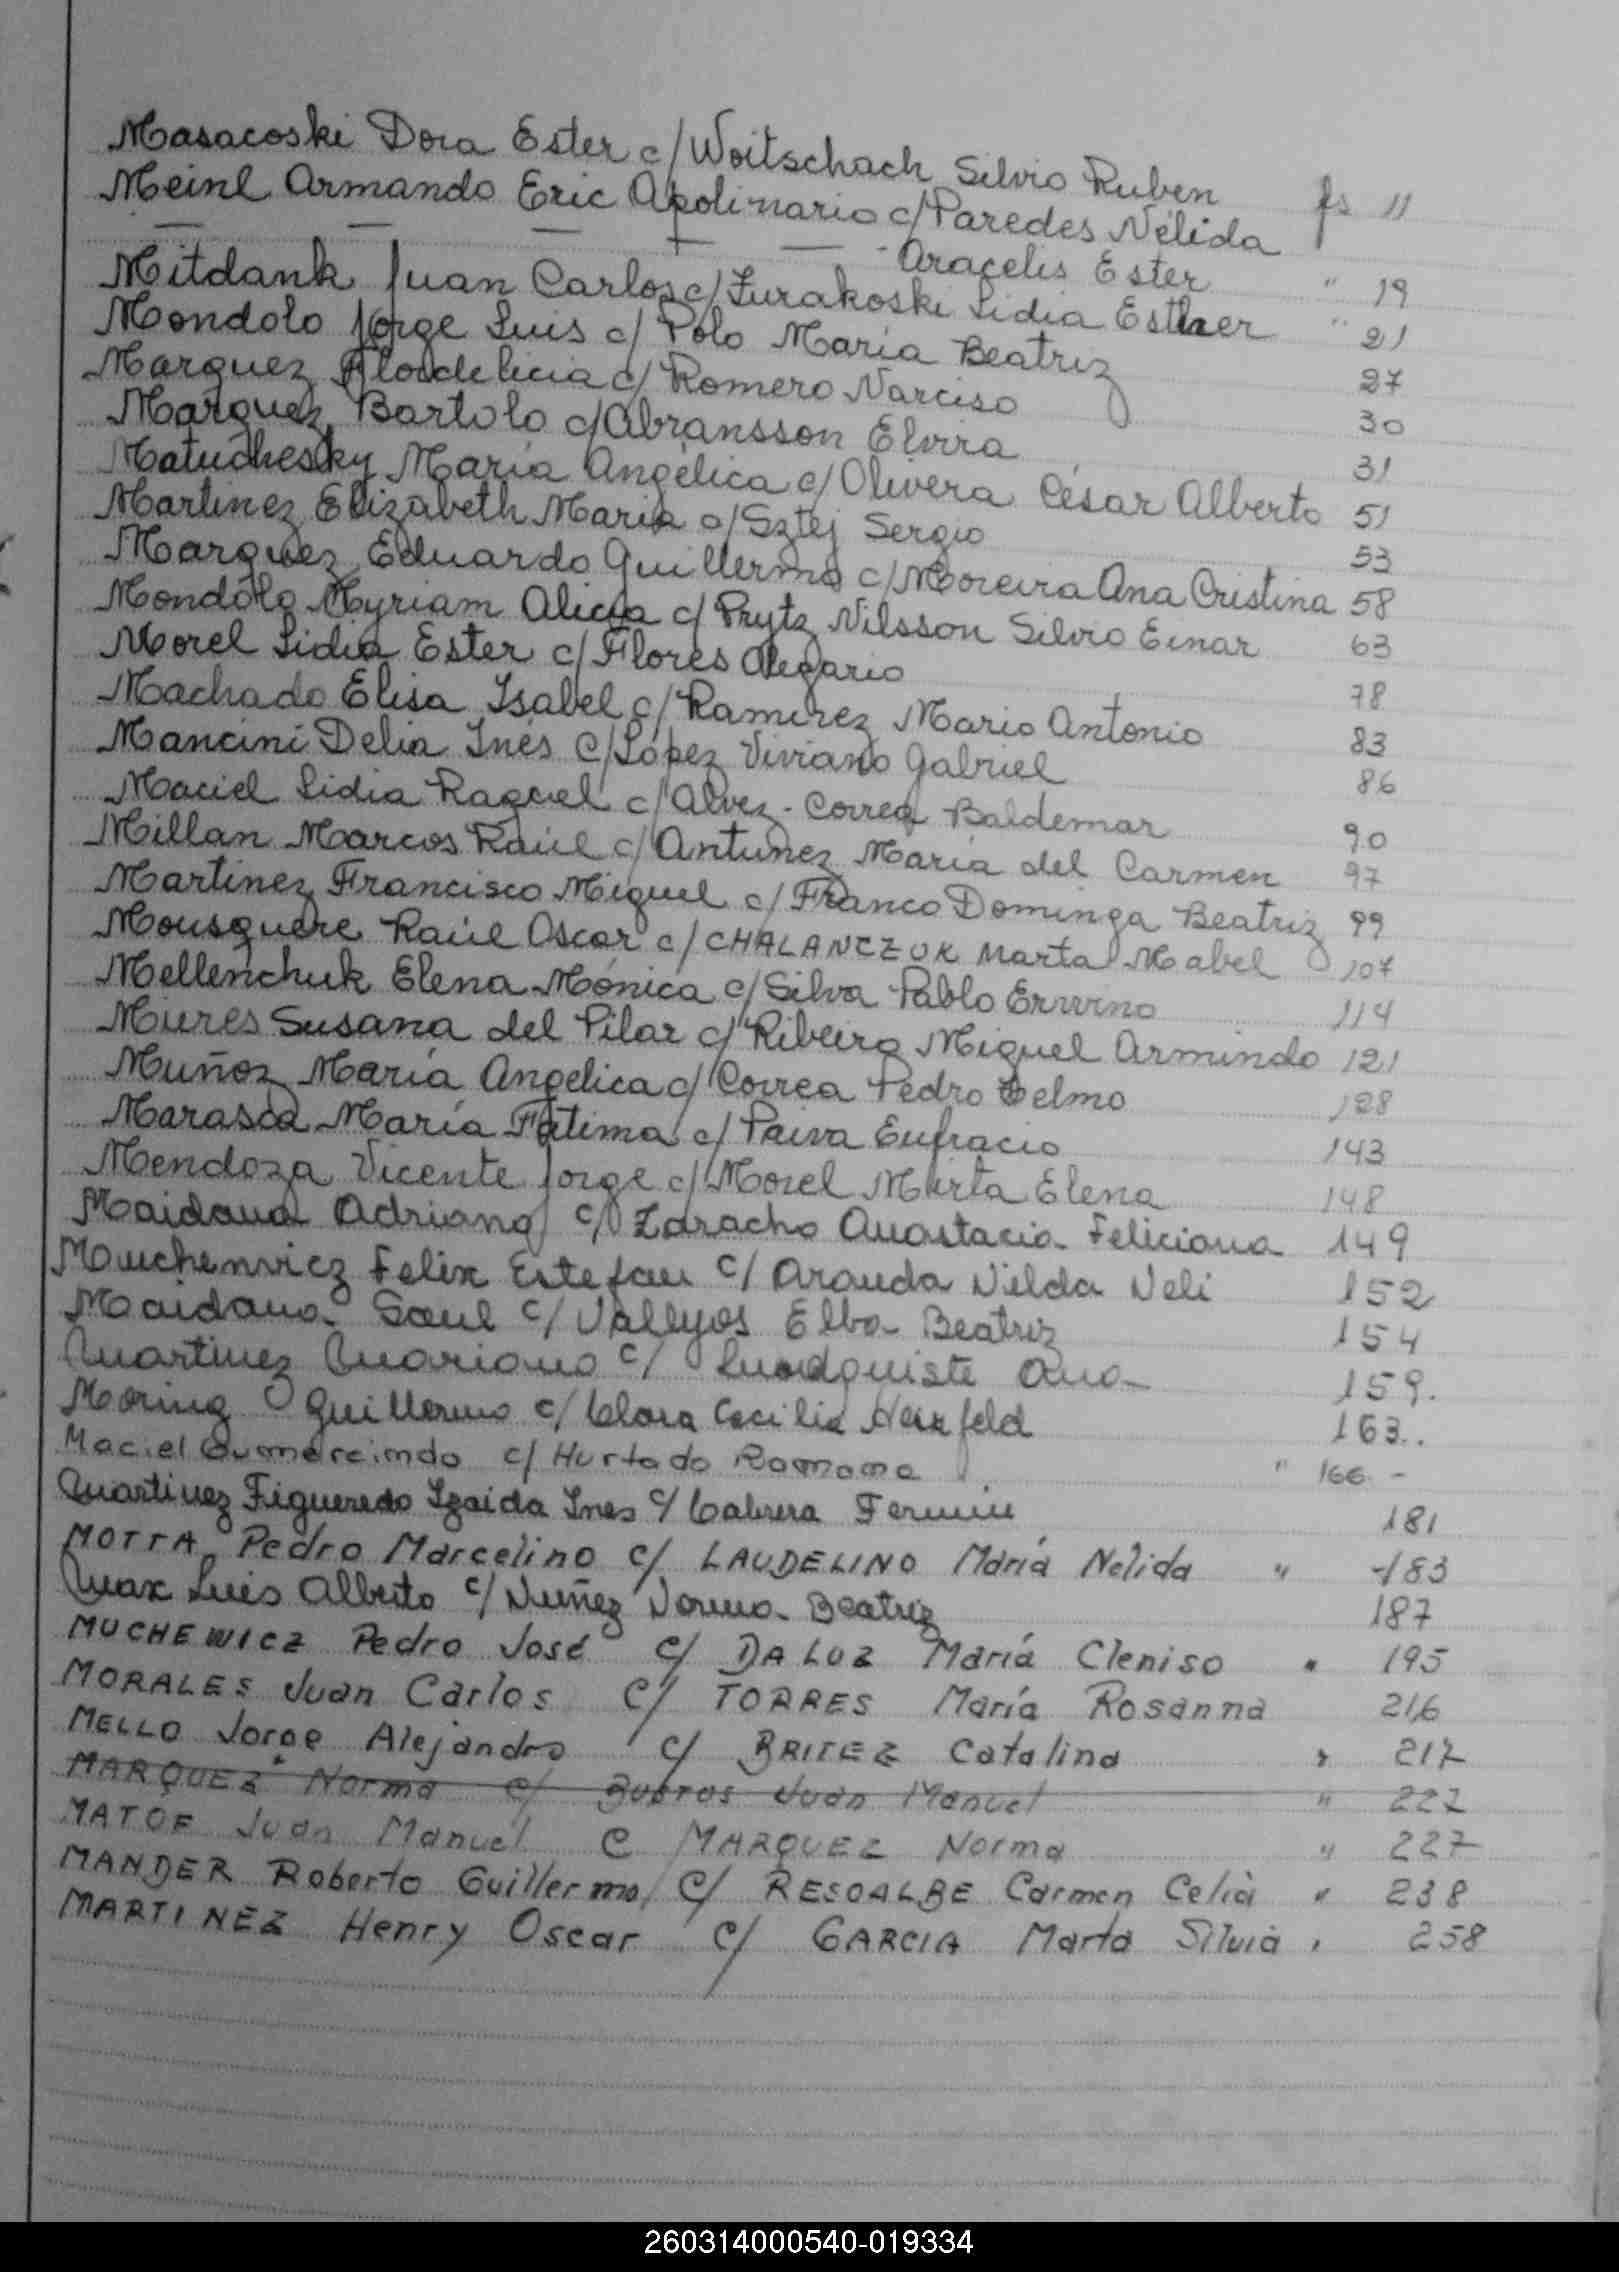 Masacoski Dora Ester c/ Woitschach Silvio Ruben fs 11
Meinl Armando Eric Apolinario c/ Paredes Nélida
— — — — — Aracelis Ester " 19
Mitdank Juan Carlos c/ Zurakoski Lidia Esther " 21
Mondolo Jorge Luis c/ Polo María Beatriz 27
Marquez Flordelicia c/ Romero Narciso 30
Marquez Bartolo c/ Abransson Elvira 31
Matuchesky María Angélica c/ Olivera César Alberto 51
Martinez Elizabeth Maria c/ Sztej Sergio 53
Marquez Eduardo Guillermo c/ Moreira Ana Cristina 58
Mondolo Myriam Alicia c/ Prytz Nilsson Silvio Einar 63
Morel Lidia Ester c/ Flores Olegario 78
Machado Elisa Isabel c/ Ramirez Mario Antonio 83
Mancini Delia Inés c/ López Viviano Gabriel 86
Maciel Lidia Raquel c/ Alvez - Correa Baldemar 90
Millan Marcos Raúl c/ Antunez María del Carmen 97
Martinez Francisco Miguel c/ Franco Dominga Beatriz 99
Mousquere Raúl Oscar c/ CHALANCZUK Marta Mabel 107
Mellenchuk Elena Mónica c/ Silva Pablo Erwino 114
Mieres Susana del Pilar c/ Ribeiro Miguel Armindo 121
Muñoz María Angelica c/ Correa Pedro Telmo 128
Marasca María Fatima c/ Paiva Eufracio 143
Mendoza Vicente Jorge c/ Morel Mirta Elena 148
Maidana Adriano c/ Zaracho Anastacia Feliciana 149
Muchenvicz Felix Estefan c/ Aranda Nilda Neli 152
Maidana Saul c/ Vallyos Elba Beatriz 154
Martinez Mariano c/ Lundquiste Ana 159.
Moring Guillermo c/ Clara Cecilia Neufeld 163..
Maciel Gumarcimdo c/ Hurtado Ramona " 166 -
Martinez Figueredo Izaida Ines c/ Cabrera Fermin 181
MOTTA Pedro Marcelino c/ LAUDELINO María Nelida " 183
Max Luis Alberto c/ Nuñez Norma Beatriz 187
MUCHEWICZ Pedro José c/ DA LUZ María Cleniso " 195
MORALES Juan Carlos c/ TORRES María Rosanna 216
MELLO Jorge Alejandro c/ BRITEZ Catalina " 217
MARQUEZ Norma c/ Juan Manuel " 227
MATOF Juan Manuel C MARQUEZ Norma " 227
MANDER Roberto Guillermo c/ RESOALBE Carmen Celia " 238
MARTINEZ Henry Oscar c/ GARCIA Marta Silvia " 258
260314000540-019334